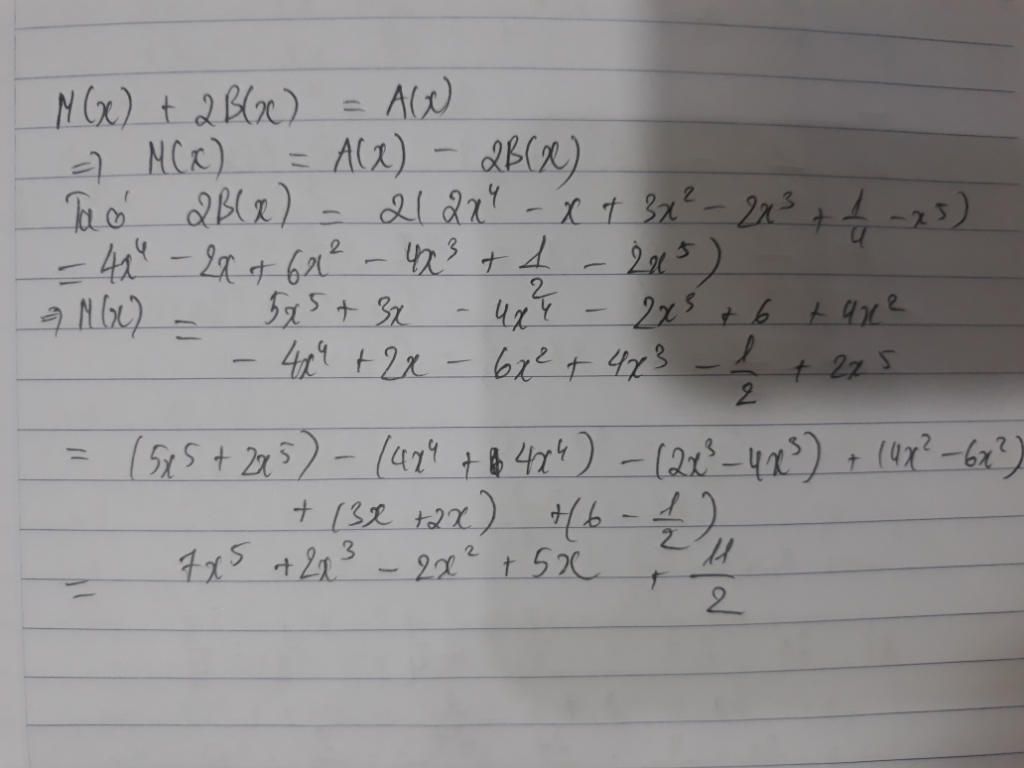 M(x) + 2B(x) = A(x)
=> M(x) = A(x) - 2B(x)
Ta có 2B(x) = 2( 2x⁴ - x + 3x² - 2x³ + 1/4 - x⁵)
= 4x⁴ - 2x + 6x² - 4x³ + 1/2 - 2x⁵)
=> M(x) = 5x⁵ + 3x - 4x⁴ - 2x³ + 6 + 4x²
- 4x⁴ + 2x - 6x² + 4x³ - 1/2 + 2x⁵
= (5x⁵ + 2x⁵) - (4x⁴ + 4x⁴) - (2x³ - 4x³) + (4x² - 6x²)
+ (3x + 2x) + (6 - 1/2)
= 7x⁵ + 2x³ - 2x² + 5x + 11/2